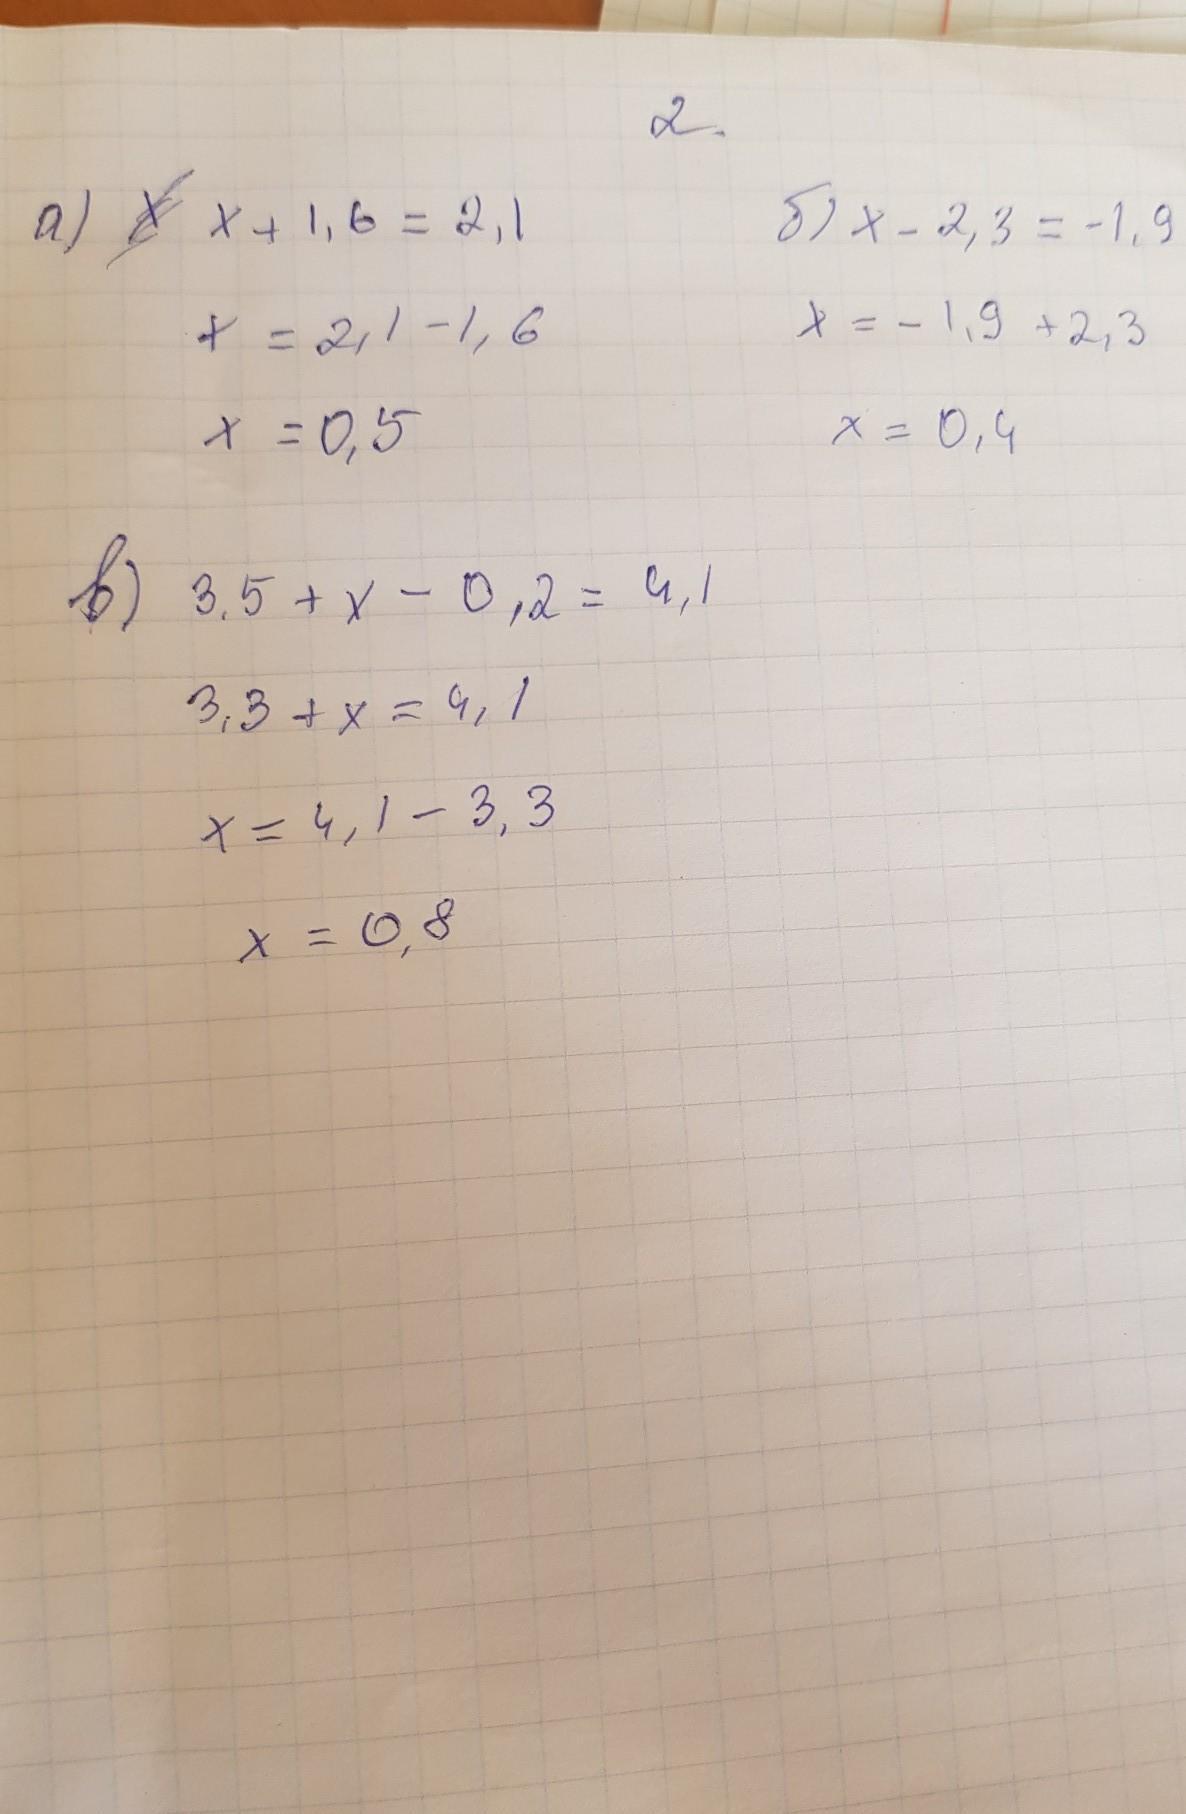 2.
а) x + 1,6 = 2,1
x = 2,1 - 1,6
x = 0,5
б) x - 2,3 = -1,9
x = - 1,9 + 2,3
x = 0,4
в) 3,5 + x - 0,2 = 4,1
3,3 + x = 4,1
x = 4,1 - 3,3
x = 0,8